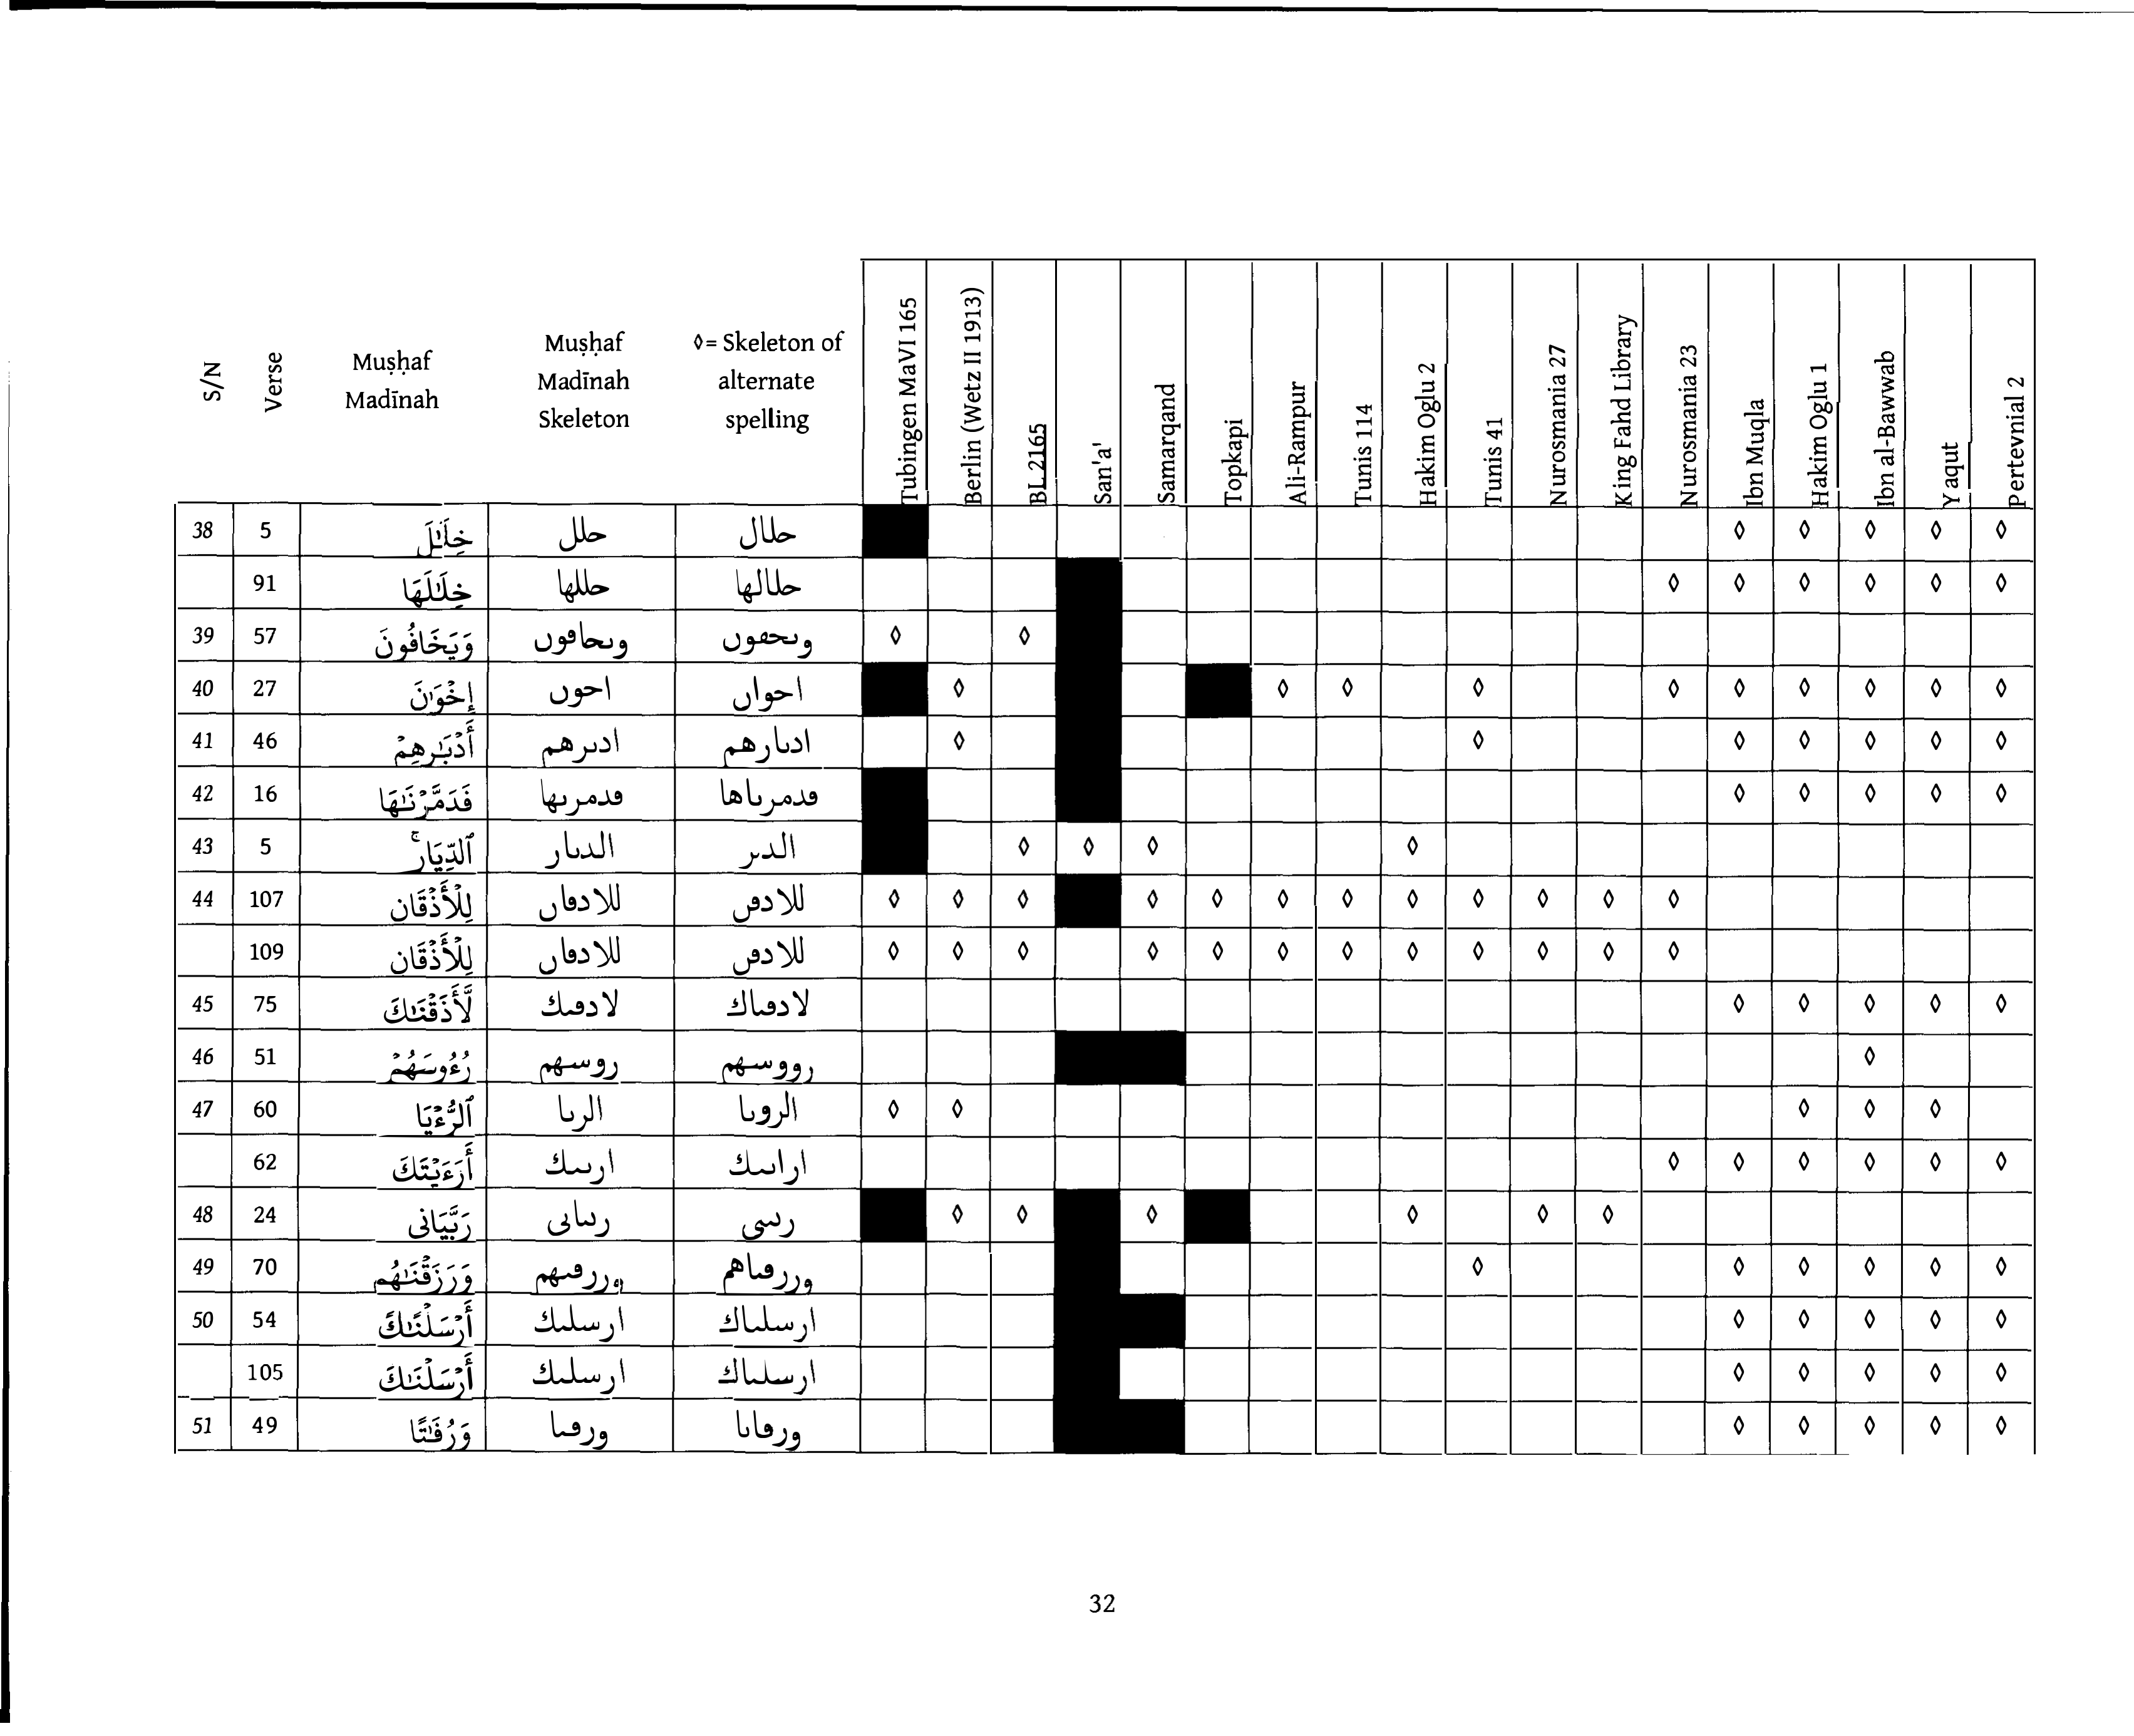 S/N Verse Muṣḥaf Madīnah Muṣḥaf Madīnah Skeleton ◊= Skeleton of alternate spelling Tubingen MaVI 165 Berlin (Wetz II 1913) BL 2165 San'a' Samarqand Topkapi Ali-Rampur Tunis 114 Hakim Oglu 2 Tunis 41 Nurosmania 27 King Fahd Library Nurosmania 23 Ibn Muqla Hakim Oglu 1 Ibn al-Bawwab Yaqut Pertevnial 2
38 5 خِلَٰلَ حلل حلال ◊ ◊ ◊ ◊ ◊
91 خِلَٰلَهَا حللها حلالها ◊ ◊ ◊ ◊ ◊ ◊
39 57 وَيَخَافُونَ وٮحاڡوں وٮحڡوں ◊ ◊
40 27 إِخْوَٰنَ احوں احواں ◊ ◊ ◊ ◊ ◊ ◊ ◊ ◊ ◊ ◊
41 46 أَدْبَٰرِهِمْ ادٮرهم ادٮارهم ◊ ◊ ◊ ◊ ◊ ◊ ◊
42 16 فَدَمَّرْنَٰهَا ڡدمرٮها ڡدمرٮاها ◊ ◊ ◊ ◊ ◊
43 5 ٱلدِّيَارِۚ الدٮار الدٮر ◊ ◊ ◊ ◊
44 107 لِلْأَذْقَانِ للادٯاں للادٯں ◊ ◊ ◊ ◊ ◊ ◊ ◊ ◊ ◊ ◊ ◊ ◊
109 لِلْأَذْقَانِ للادٯاں للادٯں ◊ ◊ ◊ ◊ ◊ ◊ ◊ ◊ ◊ ◊ ◊ ◊
45 75 لَّأَذَقْنَٰكَ لادٯٮك لادٯٮاك ◊ ◊ ◊ ◊ ◊
46 51 رُءُوسَهُمْ روسهم رووسهم ◊
47 60 ٱلرُّءْيَا الرٮا الروٮا ◊ ◊ ◊ ◊ ◊
62 أَرَءَيْتَكَ ارٮٮك اراٮٮك ◊ ◊ ◊ ◊ ◊ ◊
48 24 رَبَّيَانِى رٮٮاٮى رٮٮٮى ◊ ◊ ◊ ◊ ◊ ◊
49 70 وَرَزَقْنَٰهُم وررٯٮهم وررٯٮاهم ◊ ◊ ◊ ◊ ◊ ◊
50 54 أَرْسَلْنَٰكَ ارسلٮك ارسلٮاك ◊ ◊ ◊ ◊ ◊
105 أَرْسَلْنَٰكَ ارسلٮك ارسلٮاك ◊ ◊ ◊ ◊ ◊
51 49 وَرُفَٰتًا ورڡٮا ورڡاٮا ◊ ◊ ◊ ◊ ◊
32